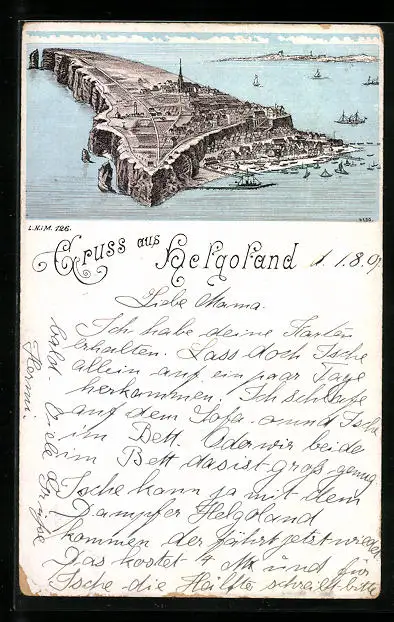 L.K.i.M. 126.
Gruss aus Helgoland d. 1.8.
Liebe Mama.
Ich habe deine Karten
erhalten. Lass doch Ische
allein auf ein paar Tage
herkommen. Ich schlafe
auf dem Sofa und Ische
im Bett. Oder wir beide
im Bett das ist groß genug
Ische kann ja mit dem
Dampfer Helgoland
kommen der fährt jetzt wieder
Das kostet 4 Mk und für
Ische die Hälfte schreib bitte
bald. Viele Grüße